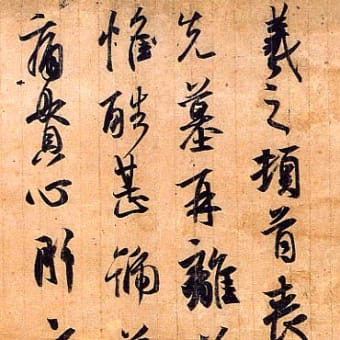 羲之頓首喪
先墓再離
惟酷甚號
痛貫心肝